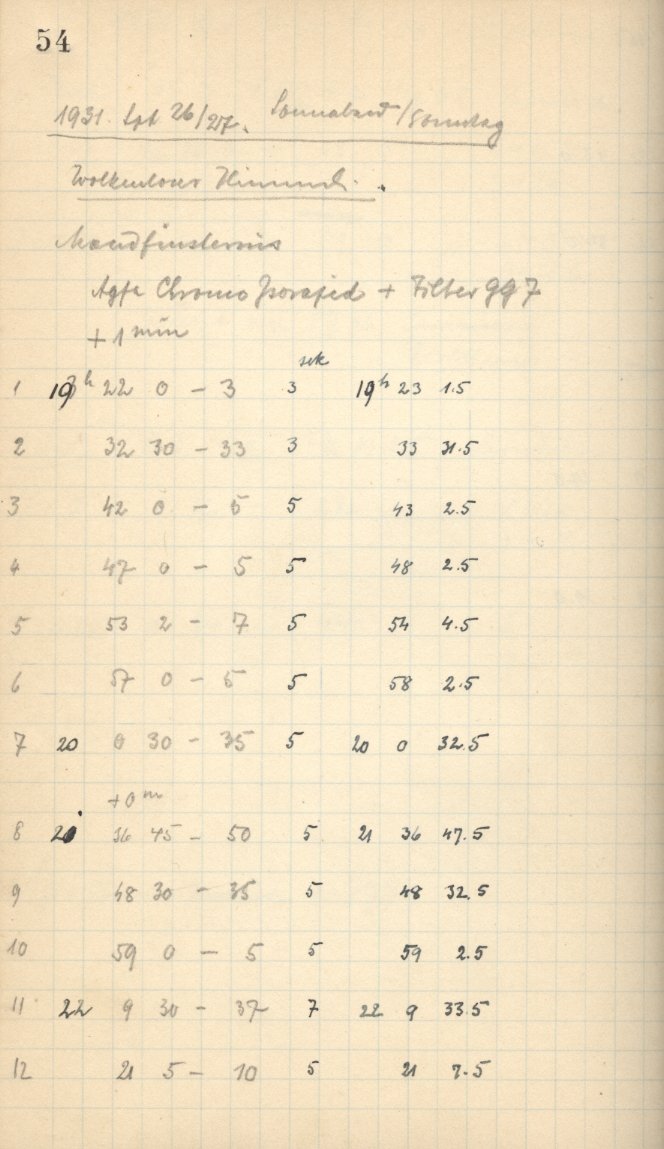 54
1931. Spt 26/27. Sonnabend/Sonntag
Wolkenloser Himmel.
Mondfinsternis
Agfa Chromo Isorapid + Filter 997
+ 1 min
sek
1 19h 22 0 – 3 3 19h 23 1.5
2 32 30 – 33 3 33 31.5
3 42 0 – 5 5 43 2.5
4 47 0 – 5 5 48 2.5
5 53 2 – 7 5 54 4.5
6 57 0 – 5 5 58 2.5
7 20 0 30 – 35 5 20 0 32.5
+ 0 m
8 36 45 – 50 5 21 36 47.5
9 48 30 – 35 5 48 32.5
10 59 0 – 5 5 59 2.5
11 22 9 30 – 37 7 22 9 33.5
12 21 5 – 10 5 21 7.5